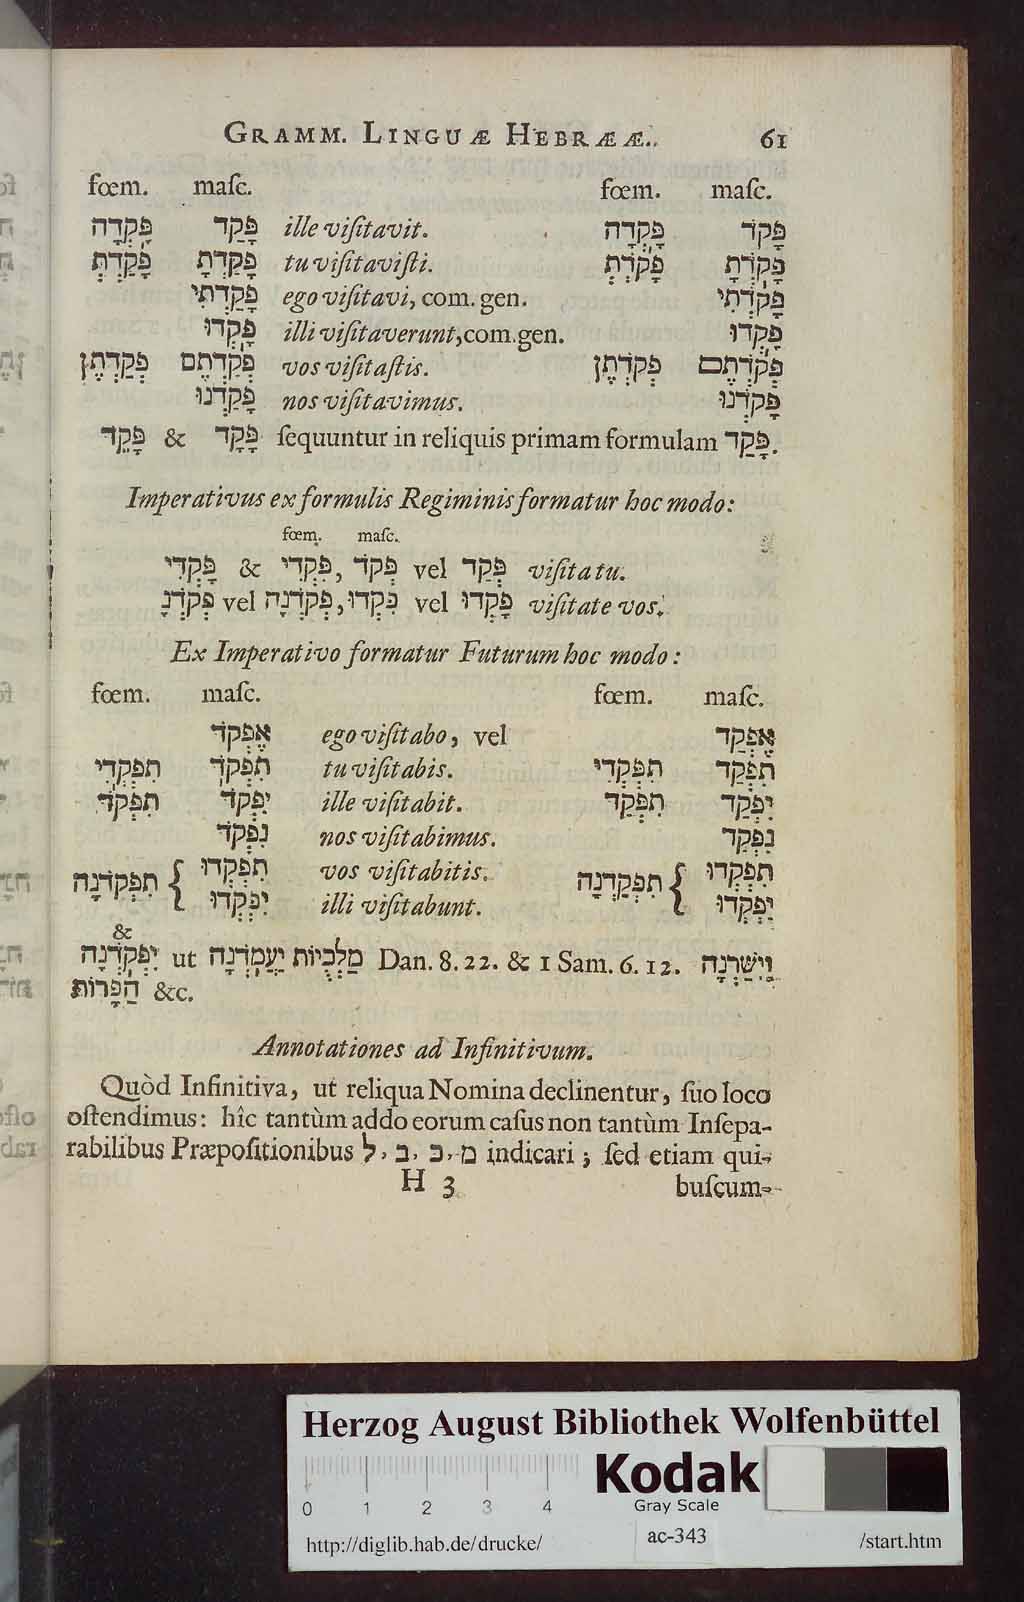 GRAMM. LINGUÆ HEBRÆÆ. 61
fœm. maſc. fœm. maſc.
פָּקְדָה פָּקַד ille viſitavit. פָּקְדָה פָּקֹד
פָּקַדְתְּ פָּקַדְתָּ tu viſitaviſti. פָּקֹדְתְּ פָּקֹדְתָּ
פָּקַדְתִּי ego viſitavi, com. gen. פָּקֹדְתִּי
פָּקְדוּ illi viſitaverunt, com. gen. פָּקְדוּ
פְּקַדְתֶּן פְּקַדְתֶּם vos viſitaſtis. פְּקֹדְתֶּן פְּקֹדְתֶּם
פָּקַדְנוּ nos viſitavimus. פָּקֹדְנוּ
פָּקֵד & פָּקָד ſequuntur in reliquis primam formulam פָּקַד.
Imperativus ex formulis Regiminis formatur hoc modo:
fœm. maſc.
פָּקְדִי & פִּקְדִי, פְּקֹד vel פְּקַד viſita tu.
פְּקֹדְןָ vel פְּקֹדְנָה, פִּקְדוּ vel פָּקְדוּ viſitate vos.
Ex Imperativo formatur Futurum hoc modo:
fœm. maſc. fœm. maſc.
אֶפְקֹד ego viſitabo, vel אֶפְקַד
תִפְקְדִי תִפְקֹד tu viſitabis. תִפְקְדִי תִפְקַד
תִפְקֹד יִפְקֹד ille viſitabit. תִפְקַד יִפְקַד
נִפְקֹד nos viſitabimus. נִפְקַד
תִפְקֹדְנָה { תִפְקְדוּ vos viſitabitis. תִפְקַדְנָה { תִפְקְדוּ
יִפְקְדוּ illi viſitabunt. יִפְקְדוּ
&
יִפְקֹדְנָה ut מַלְכֻיוֹת יַעֲמֹדְנָה Dan. 8. 22. & 1 Sam. 6. 12. וַיִּשַּׁרְנָה
הַפָּרוֹת &c.
Annotationes ad Infinitivum.
Quòd Infinitiva, ut reliqua Nomina declinentur, ſuo loco
oſtendimus: hîc tantùm addo eorum caſus non tantùm Inſepa-
rabilibus Præpoſitionibus מ, כ, ב, ל indicari; ſed etiam qui-
H 3 buſcum-
Herzog August Bibliothek Wolfenbüttel
Kodak
0 1 2 3 4 Gray Scale
http://diglib.hab.de/drucke/ ac-343 /start.htm